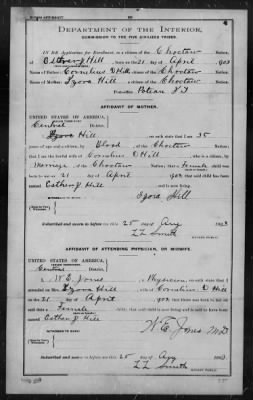 DEPARTMENT OF THE INTERIOR,
COMMISSION TO THE FIVE CIVILIZED TRIBES.
IN RE Application for Enrollment, as a citizen of the Choctaw Nation,
of Esther J Hill, born on the 21 day of April, 1903
Name of Father: Cornelius D Hill a citizen of the Choctaw Nation.
Name of Mother: Izora Hill a citizen of the Choctaw Nation.
Postoffice Poteau I.T
AFFIDAVIT OF MOTHER.
UNITED STATES OF AMERICA,
Central District.
I, Izora Hill, on oath state that I am 35
years of age and a citizen, by Blood, of the Choctaw Nation;
that I am the lawful wife of Cornelius D Hill, who is a citizen, by
Marriage of the Choctaw Nation; that a Female child was
born to me on 21 day of April, 1903, that said child has been
named Esther J Hill, and is now living.
Izora Hill
Subscribed and sworn to before me this 25 day of Aug 1903
L L Smith
NOTARY PUBLIC.
AFFIDAVIT OF ATTENDING PHYSICIAN, OR MIDWIFE.
UNITED STATES OF AMERICA,
Central District.
I, W E Jones, a Physician, on oath state that I
attended on Mrs. Izora Hill, wife of Cornelius D Hill
on the 21 day of April, 1903, that there was born to her on
said date a Female child; that said child is now living and is said to have been
named Esther J Hill
W E Jones MD
Subscribed and sworn to before me this 25 day of Aug 1903
L L Smith
NOTARY PUBLIC.